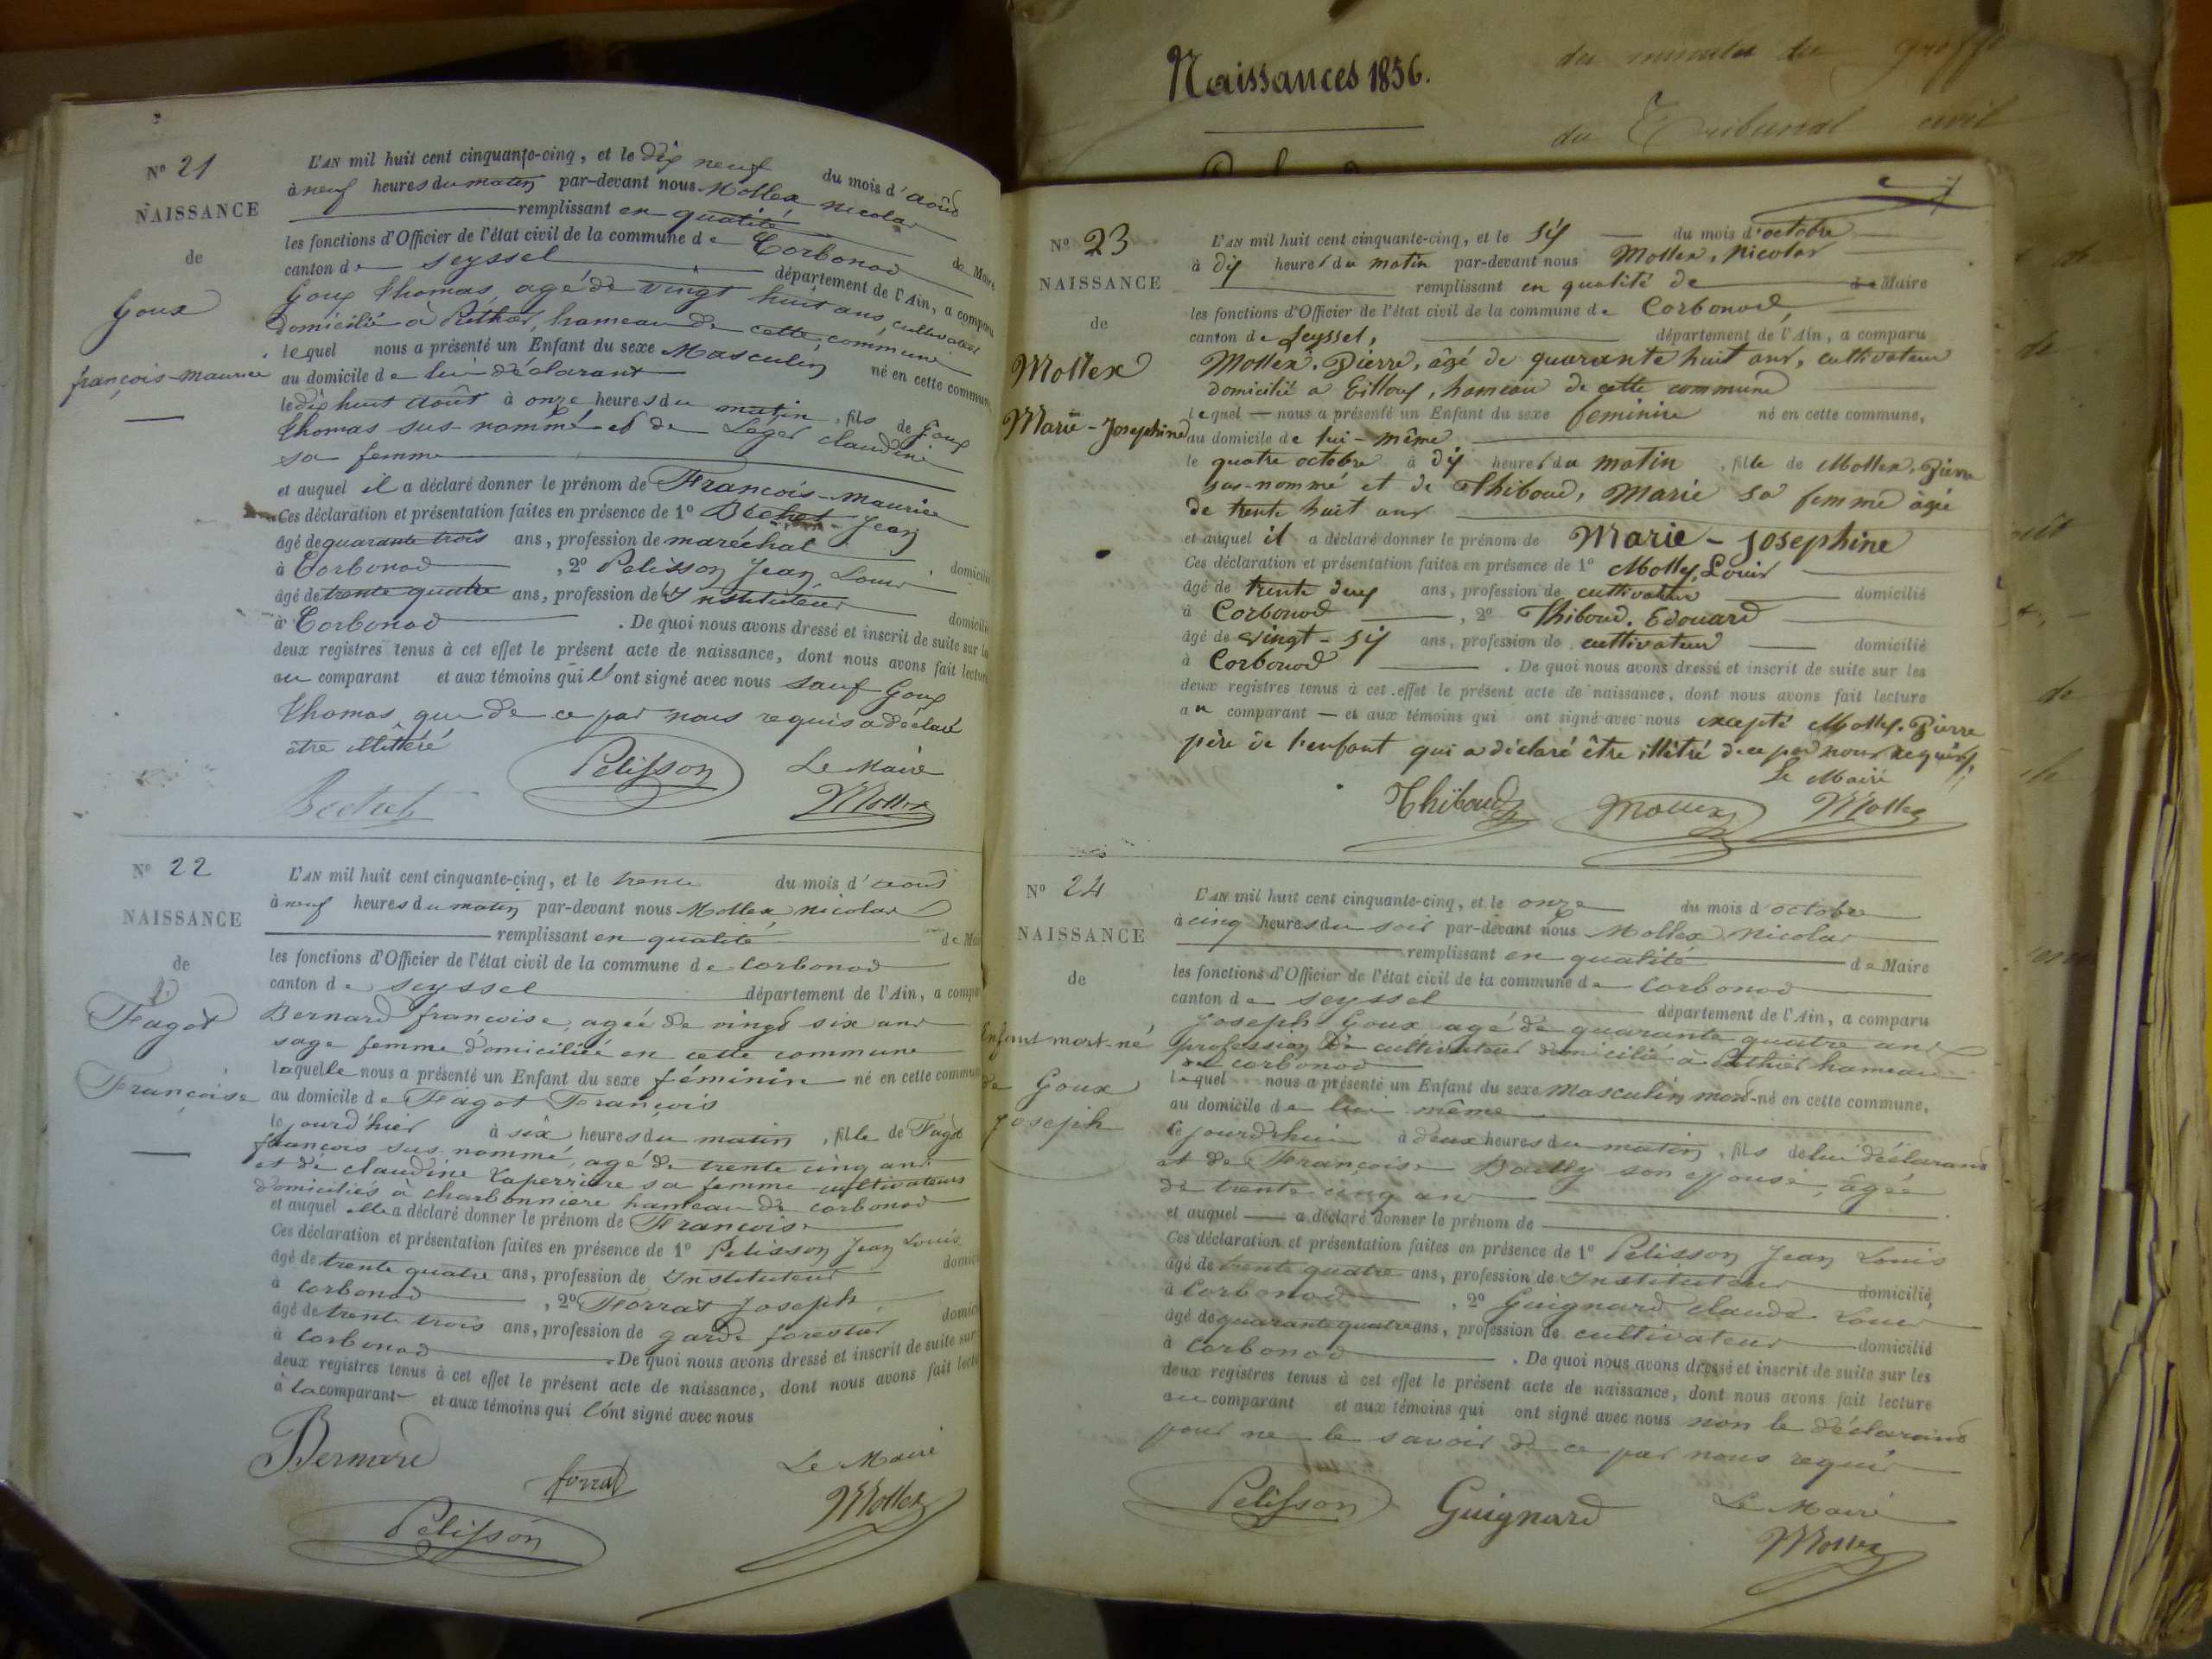 Naissances 1856.
des minutes du greffe
du Tribunal civil
N° 21
NAISSANCE
de
Goux
françois-maurice
L'AN mil huit cent cinquante-cinq, et le dix neuf du mois d'août
à neuf heures du matin par-devant nous Mollex nicolas
remplissant en qualité de Maire
les fonctions d'Officier de l'état civil de la commune de Corbonod
canton de seyssel département de l'Ain, a comparu
Goux thomas, agé de vingt huit ans, cultivateur
domicilié à hameau de cette commune
lequel nous a présenté un Enfant du sexe Masculin né en cette commune
au domicile de lui déclarant
le dix huit août à onze heures du matin, fils de Goux
thomas sus-nommé et de Léger claudine
sa femme
et auquel il a déclaré donner le prénom de François-maurice
Ces déclaration et présentation faites en présence de 1° Béchet Jean
âgé de quarante trois ans, profession de maréchal domicilié
à Corbonod, 2° Pelisson Jean Louis
âgé de trente quatre ans, profession d'Instituteur domicilié
à Corbonod. De quoi nous avons dressé et inscrit de suite sur les
deux registres tenus à cet effet le présent acte de naissance, dont nous avons fait lecture
au comparant et aux témoins qui l'ont signé avec nous sauf Goux
thomas que de ce par nous requis a déclaré
être illétéré
Pelisson Le Maire
Mollex
N° 22
NAISSANCE
de
Fagot
Françoise
L'AN mil huit cent cinquante-cinq, et le trente du mois d'août
à neuf heures du matin par-devant nous Mollex nicolas
remplissant en qualité de Maire
les fonctions d'Officier de l'état civil de la commune de Corbonod
canton de seyssel département de l'Ain, a comparu
Bernard françoise, agée de vingt six ans
sage femme domiciliée en cette commune
laquelle nous a présenté un Enfant du sexe féminin né en cette commune
au domicile de Fagot François
le jourd'hier à six heures du matin, fille de Fagot
françois sus nommé, agé de trente cinq ans
et de claudine Laperriere sa femme cultivateurs
domiciliés à charbonniere hameau de corbonod
et auquel elle a déclaré donner le prénom de Françoise
Ces déclaration et présentation faites en présence de 1° Pelisson Jean Louis
âgé de trente quatre ans, profession de Instituteur domicilié
à corbonod, 2° Forrat Joseph
âgé de trente trois ans, profession de garde forestier domicilié
à corbonod. De quoi nous avons dressé et inscrit de suite sur
deux registres tenus à cet effet le présent acte de naissance, dont nous avons fait lecture
à la comparante et aux témoins qui l'ont signé avec nous
Bernard forrat Le Maire
Pelisson Mollex
N° 23
NAISSANCE
de
Mollex
Marie-Josephine
L'AN mil huit cent cinquante-cinq, et le six du mois d'octobre
à dix heures du matin par-devant nous Mollex, Nicolas
remplissant en qualité de Maire
les fonctions d'Officier de l'état civil de la commune de Corbonod,
canton de Seyssel, département de l'Ain, a comparu
Mollex, Pierre, âgé de quarante huit ans, cultivateur
domicilié à Gilloux, hameau de cette commune
lequel nous a présenté un Enfant du sexe feminin né en cette commune,
au domicile de lui-même
le quatre octobre à dix heures du matin, fille de Mollex, Pierre
sus-nommé et de Thiboud, Marie sa femme âgée
de trente huit ans
et auquel il a déclaré donner le prénom de Marie-Josephine
Ces déclaration et présentation faites en présence de 1° Mollex, Louis
âgé de trente deux ans, profession de cultivateur domicilié
à Corbonod, 2° Thiboud. Edouard
âgé de vingt-six ans, profession de cultivateur domicilié
à Corbonod. De quoi nous avons dressé et inscrit de suite sur les
deux registres tenus à cet effet le présent acte de naissance, dont nous avons fait lecture
au comparant et aux témoins qui ont signé avec nous excepté Mollex. Pierre
père de l'enfant qui a déclaré être illétré de ce par nous requis.
Le Maire
Thiboud Mollex Mollex
N° 24
NAISSANCE
de
Enfant mort-né
de Goux
Joseph
L'AN mil huit cent cinquante-cinq, et le onze du mois d'octobre
à cinq heures du soir par-devant nous Mollex Nicolas
remplissant en qualité de Maire
les fonctions d'Officier de l'état civil de la commune de Corbonod
canton de seyssel département de l'Ain, a comparu
Joseph Goux agé de quarante quatre ans
profession de cultivateur domicilié à hameau
de corbonod
lequel nous a présenté un Enfant du sexe Masculin mort-né en cette commune,
au domicile de lui même
le jourd'hui à deux heures du matin, fils de lui déclarant
et de Françoise Bailly son épouse, âgée
de trente cinq ans
et auquel a déclaré donner le prénom de
Ces déclaration et présentation faites en présence de 1° Pelisson Jean Louis
âgé de trente quatre ans, profession de Instituteur domicilié
à Corbonod, 2° Guignard claude Louis
âgé de quarante quatre ans, profession de cultivateur domicilié
à Corbonod. De quoi nous avons dressé et inscrit de suite sur les
deux registres tenus à cet effet le présent acte de naissance, dont nous avons fait lecture
au comparant et aux témoins qui ont signé avec nous non le déclarant
pour ne le savoir de ce par nous requis
Pelisson Guignard Le Maire
Mollex